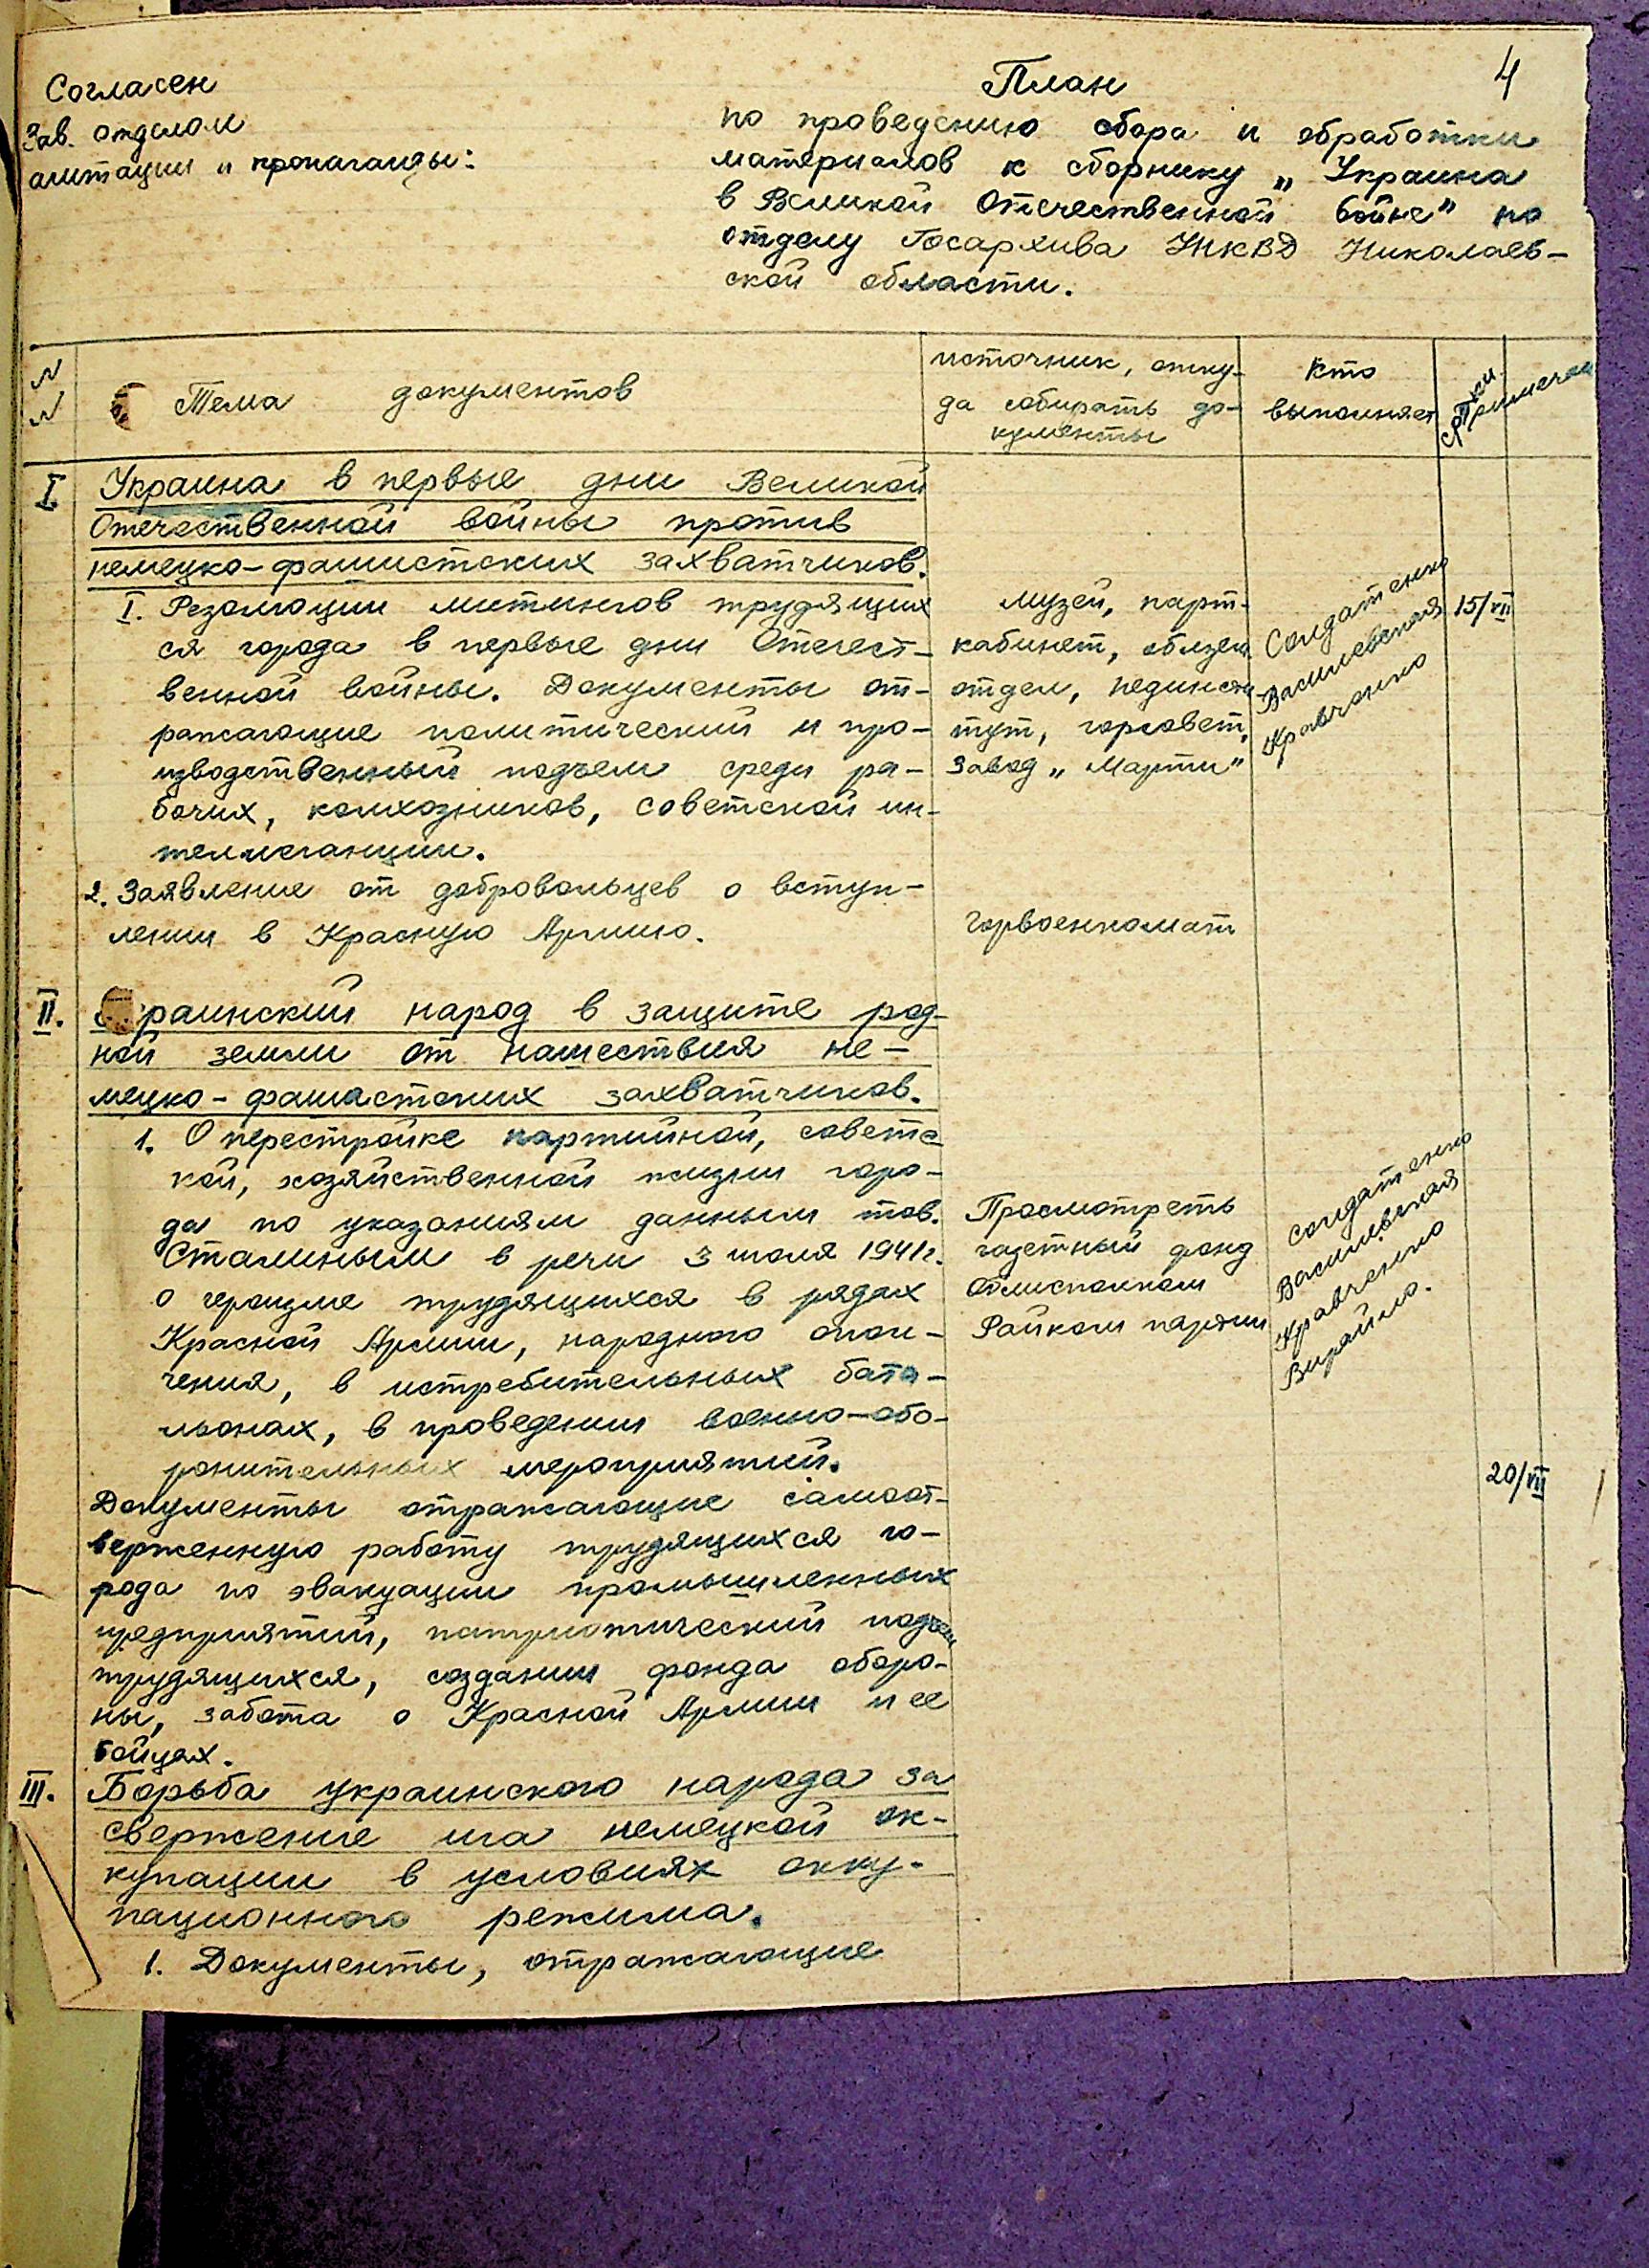 4
Согласен
Зав. отделом
агитации и пропаганды:
План
по проведению сбора и обработки
материалов к сборнику „Украина
в Великой Отечественной войне" по
отделу Госархива УНКВД Николаев-
ской области.
NN
Тема документов
источник, отку-
да собирать до-
кументы
Кто
выполняет
сроки
Примечан
I.
Украина в первые дни Великой
Отечественной войны против
немецко-фашистских захватчиков.
I. Резолюции митингов трудящих
ся города в первые дни Отечест-
венной войны. Документы от-
ражающие политический и про-
изводственный подъем среди ра-
бочих, колхозников, советской ин-
теллигенции.
музей, парт-
кабинет, облзем
отдел, пединсти
тут, горсовет,
завод „Марти"
Солдатенко
Василевская
Кравченко
15/VII
2. Заявление от добровольцев о вступ-
лении в Красную Армию.
Горвоенкомат
II.
раинский народ в защите род-
ной земли от нашествия не-
мецко-фашистских захватчиков.
1. О перестройке партийной, советс
кой, хозяйственной жизни горо-
да по указаниям данным тов.
Сталиным в речи 3 июля 1941г.
о героизме трудящихся в рядах
Красной Армии, народного опол-
чения, в истребительных бата-
льонах, в проведении военно-обо-
ронительных мероприятий.
Просмотреть
газетный фонд
Облисполком
Райком партии
Солдатенко
Василевская
Кравченко
20/VII
Документы отражающие самоот-
верженную работу трудящихся го-
рода по эвакуации промышленных
предприятий, патриотический подъем
трудящихся, создании фонда оборо-
ны, забота о Красной Армии и ее
бойцах.
III.
Борьба украинского народа за
свержение ига немецкой ок-
купации в условиях окку-
пационного режима.
1. Документы, отражающие